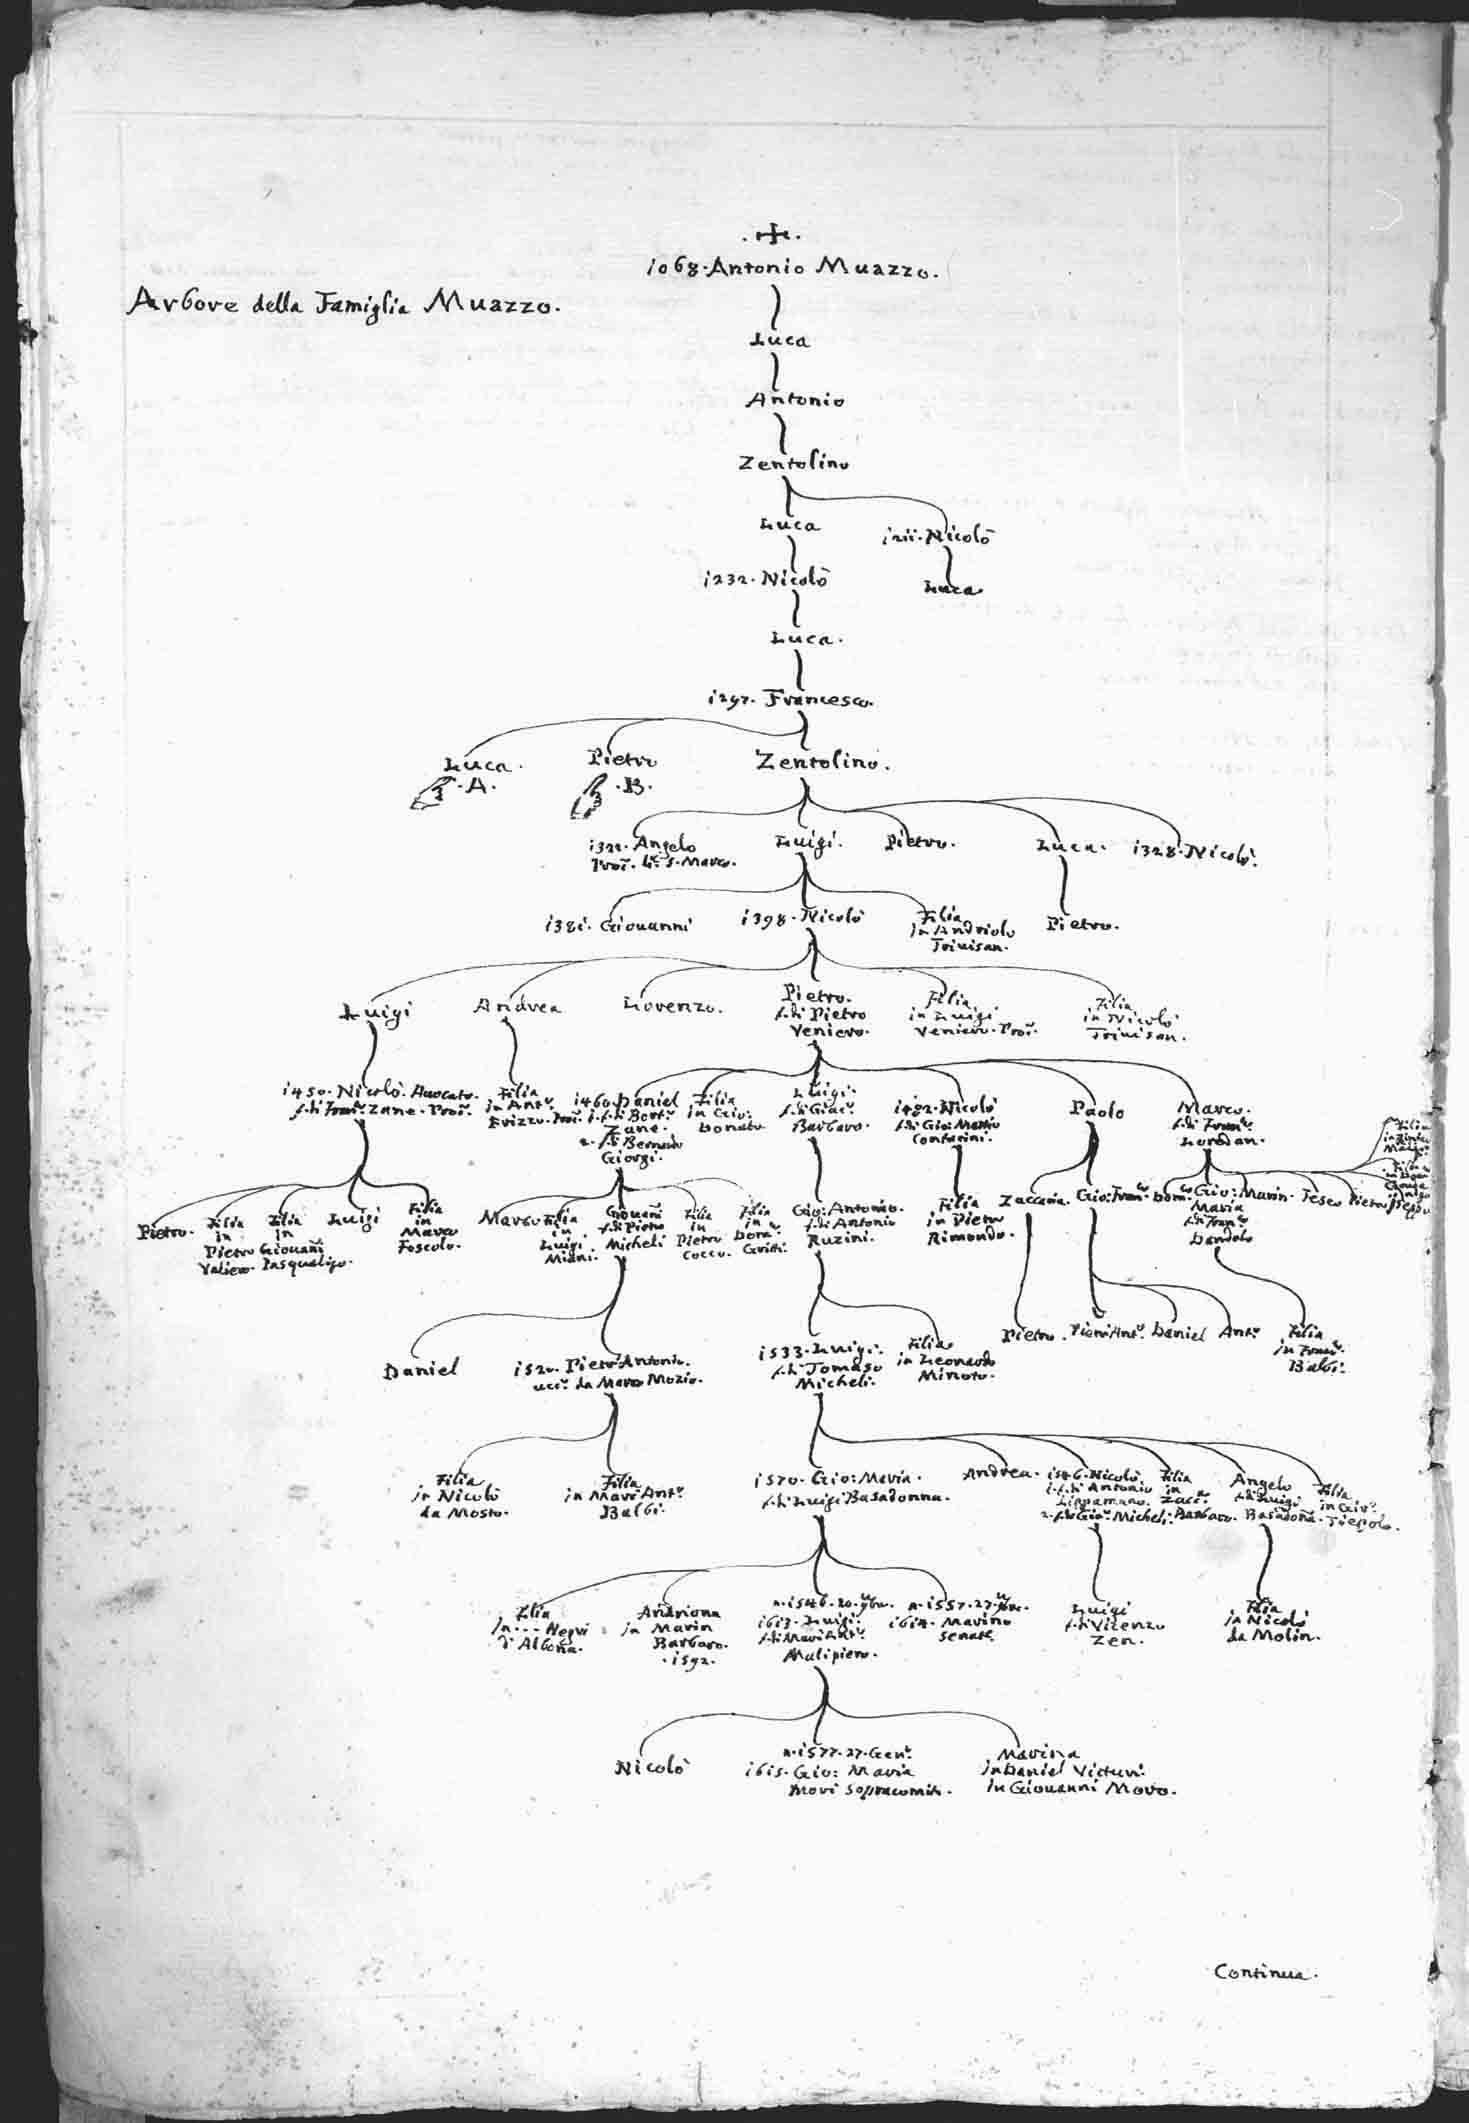 1068. Antonio Muazzo.
Arbore della Famiglia Muazzo.
Luca
Antonio
Zentolino
Luca
1211. Nicolò
1232. Nicolò
Luca
Luca.
1297. Francesco.
Luca.
Pietro
Zentolino.
.A.
.B.
Angelo
Luigi.
Pietro.
Luca.
1328. Nicolò.
S. Marco.
1381. Giouanni
1398. Nicolò
Filia
in Andriolo
Triuisan.
Pietro.
Luigi
Andrea
Lorenzo.
Pietro.
f. di Pietro
Veniero.
Filia
in Luigi
Veniero. Pror.
Filia
in Nicolò
Triuisan.
1450. Nicolò. Auocato.
f. di Franc.º Zane. Pror.
Filia
in Antº
Erizzo. Pror.
1460. Daniel
1. f. di Bortº
Zane.
2. f. di Bernardo
Giorgi.
Filia
in Gio:
Donato
Luigi.
f. di Giacº
Barbaro.
1482. Nicolò
f. di Gio: Matteo
Contarini.
Paolo
Marco.
f. di Francº
Loredan.
Pietro.
Filia
in
Pietro
Valiero.
Filia
in
Giouañi
Pasqualigo.
Luigi
Filia
in
Marco
Foscolo.
Marco
Filia
in
Luigi
Miani.
Giouañi
f. di Pietro
Micheli
Filia
in
Pietro
Cocco.
Filia
in
Domº
Gritti.
Gio: Antonio.
f. di Antonio
Ruzini.
Filia
in Pietro
Rimondo.
Zaccaria.
Gio: Francº
Domº
Gio:
Maria
f. di Francº
Dandolo
Marin.
Teseo
Pietro
Daniel
1520. Pietro Antonio.
ucc.º da Marco Mozio.
1533. Luigi.
f. di Tomaso
Micheli.
Filia
in Leonardo
Minoto.
Pietro.
Pietro Antº.
Daniel
Antº
Filia
in Francº
Balbi.
Filia
in Nicolò
da Mosto.
Filia
in Marc' Antº
Balbi.
1570. Gio: Maria.
f. di Luigi Basadonna.
Andrea.
1546. Nicolò.
1. f. di Antonio
Lippamano.
2. f. di Giaº Micheli.
Filia
in
Zacc.ª
Barbaro.
Angelo
f. di Luigi
Basadoña.
Filia
in Gioº
Tiepolo.
Filia
in --- Negri
d'Albona.
Andriana
in Marin
Barbaro.
.1592.
n. 1546. 20. 9bre.
1613. Luigi.
f. di Marc' Antº
Malipiero.
n. 1557. 27.
1614. Marino
Senatr.
Luigi
f. di Vicenzo
Zen.
Filia
in Nicolò
da Molin.
Nicolò
n. 1577. 27. Genº.
1615. Gio: Maria
morì Sopracomito.
Marina
in Daniel Vitturi.
in Giouanni Moro.
Continua.